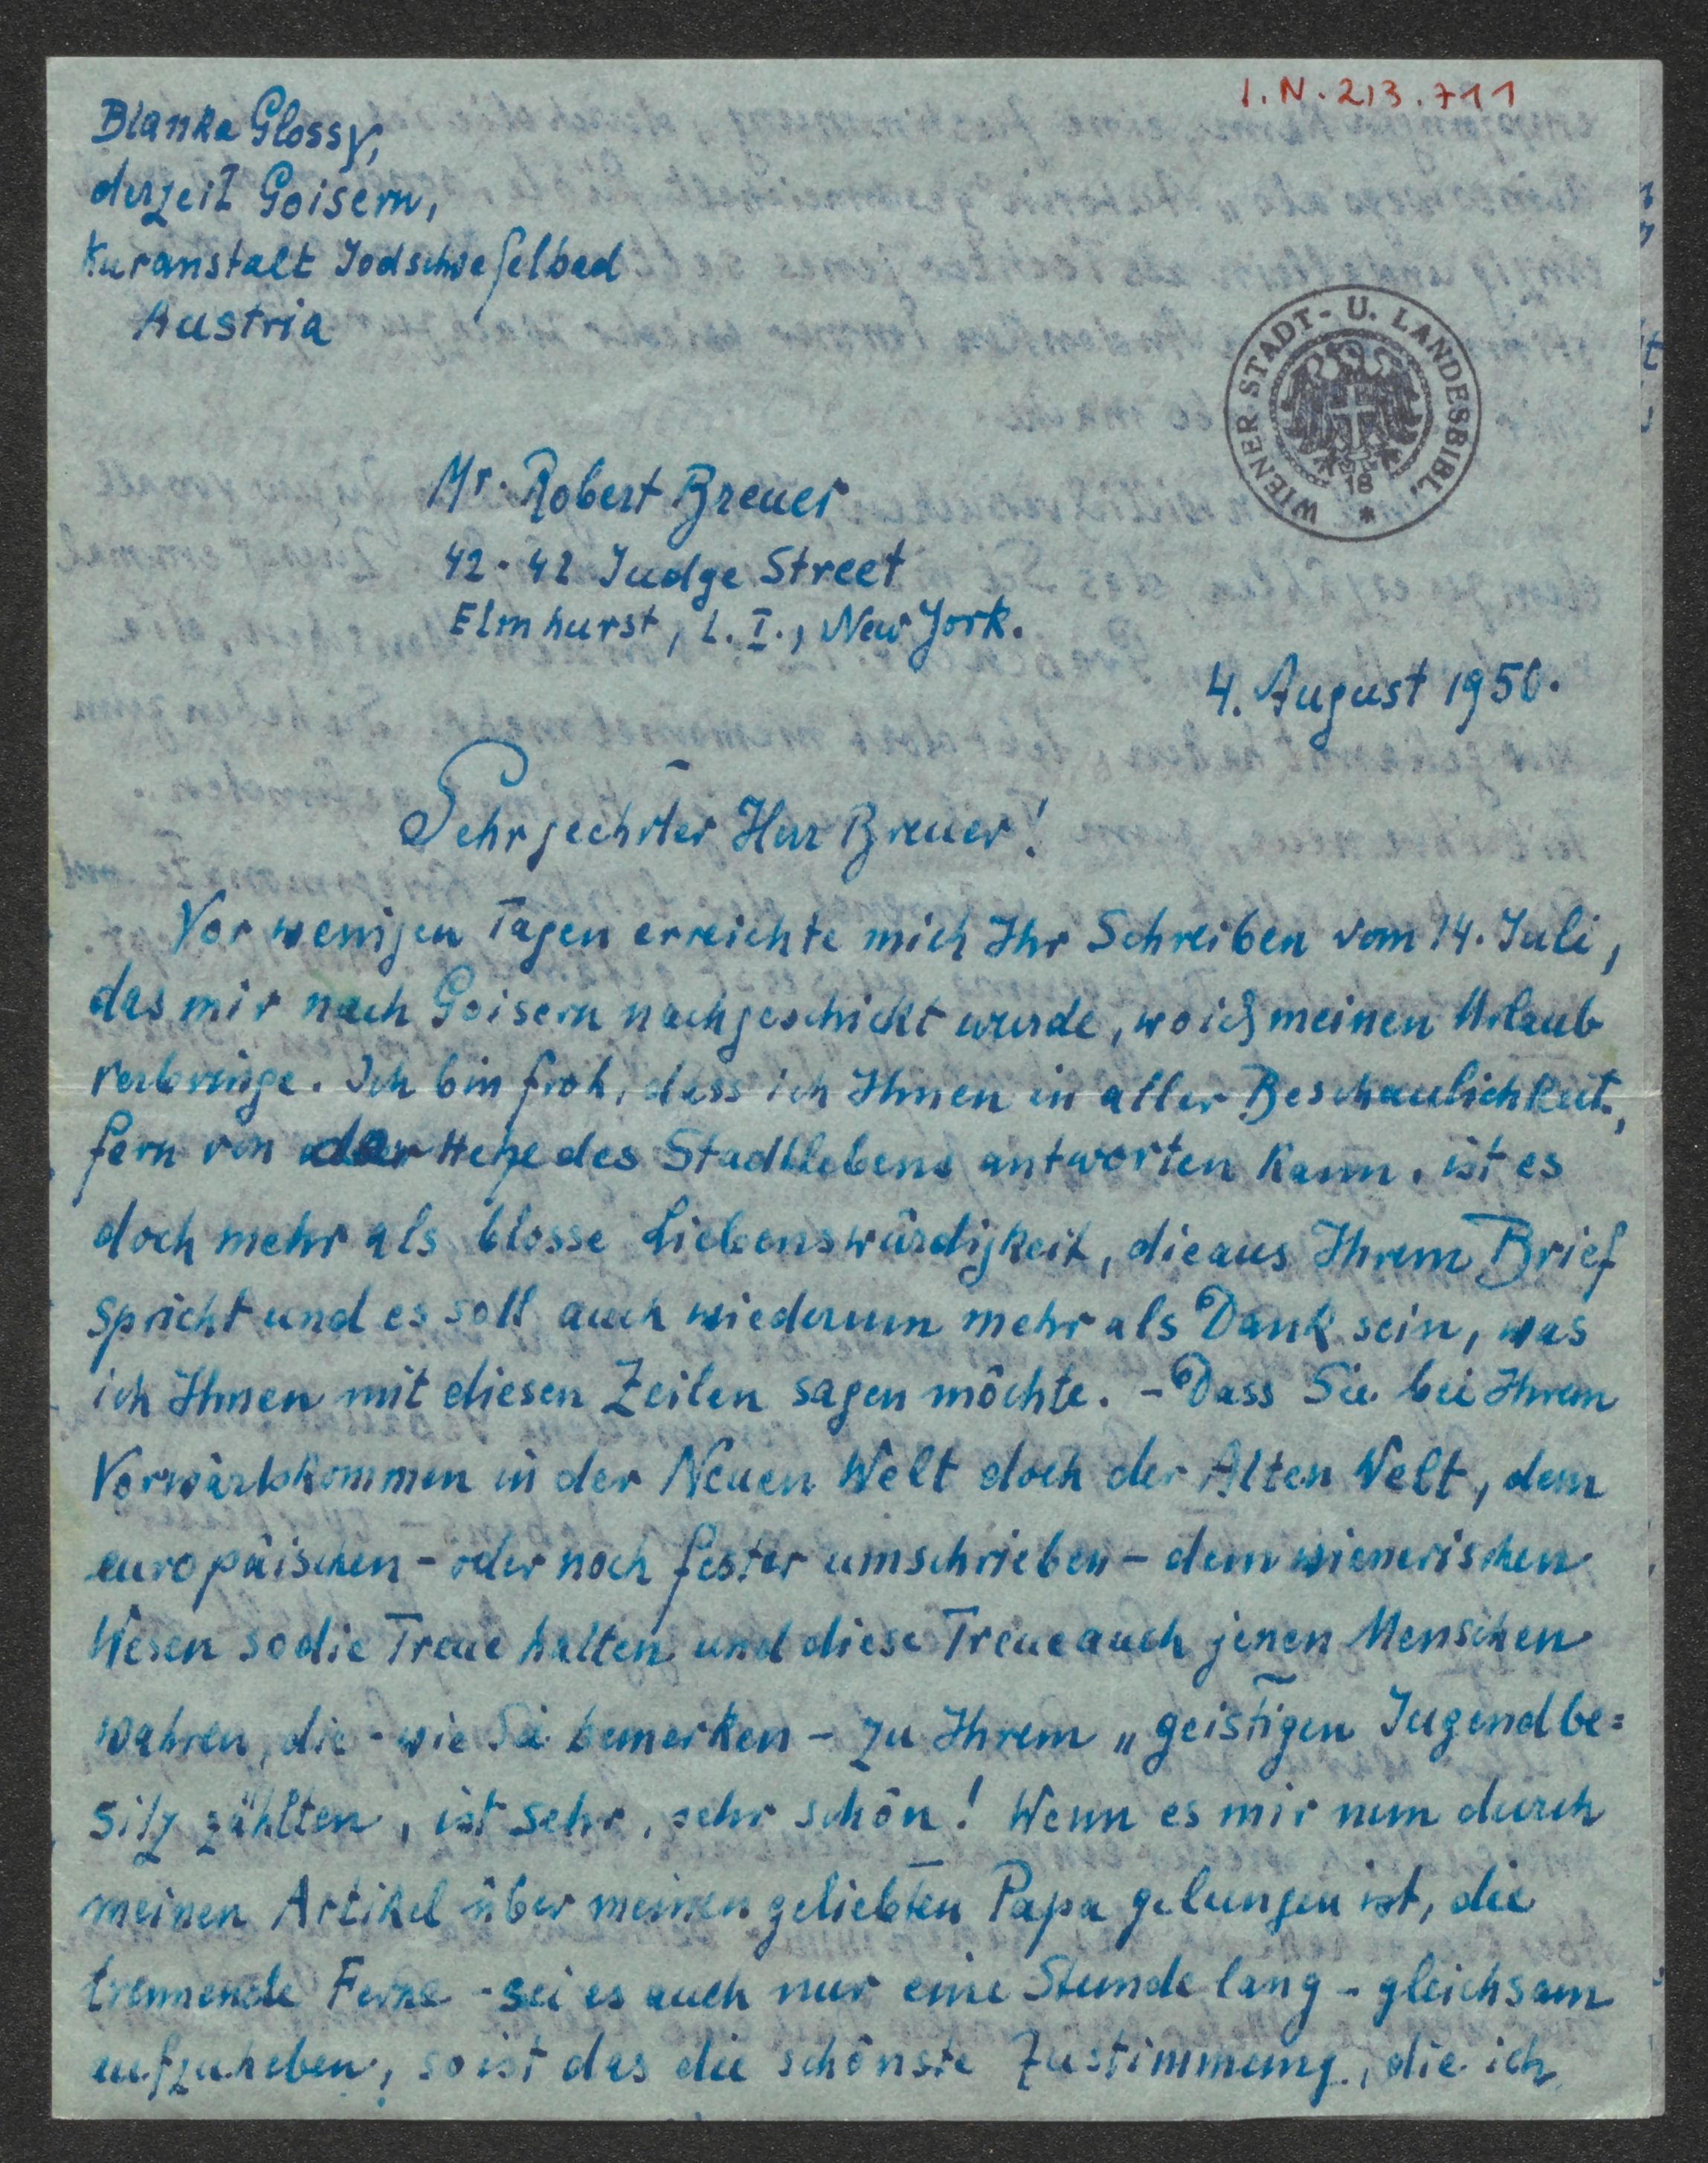 I.N. 213.711
Blanka Glossy,
derzeit Goisern,
Kuranstalt Jodschwefelbad
Austria
WIENER STADT- U. LANDESBIBL.
18
Mr. Robert Breuer
42-42 Judge Street
Elmhurst, L. I., New York.
4. August 1950.
Sehr geehrter Herr Breuer!
Vor wenigen Tagen erreichte mich Ihr Schreiben vom 14. Juli,
das mir nach Goisern nachgeschickt wurde, wo ich meinen Urlaub
verbringe. Ich bin froh, dass ich Ihnen in aller Beschaulichkeit,
fern von der Hetze des Stadtlebens antworten kann, ist es
doch mehr als blosse Liebenswürdigkeit, die aus Ihrem Brief
spricht und es soll auch wiederum mehr als Dank sein, was
ich Ihnen mit diesen Zeilen sagen möchte. - Dass Sie bei Ihrem
Vorwärtskommen in der Neuen Welt doch der Alten Welt, dem
europäischen - oder noch fester umschrieben - dem wienerischen
Wesen so die Treue halten und diese Treue auch jenen Menschen
wahren, die - wie Sie bemerken - zu Ihrem „geistigen Jugendbe=
sitz zählten, ist sehr, sehr schön! Wenn es mir nun durch
meinen Artikel über meinen geliebten Papa gelungen ist, die
trennende Ferne - sei es auch nur eine Stunde lang - gleichsam
aufzuheben, so ist das die schönste Zustimmung, die ich